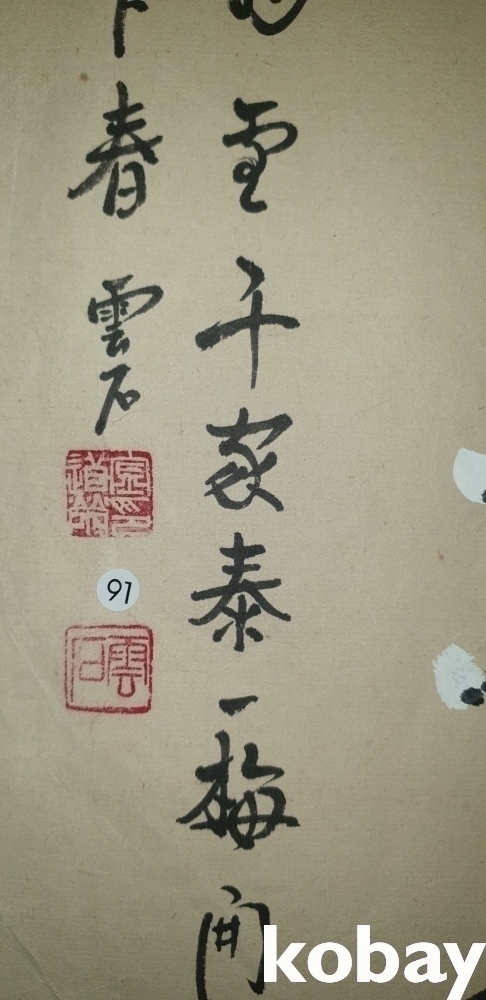 雪千家泰一梅開
下春
雲石
91
雲石
kobay